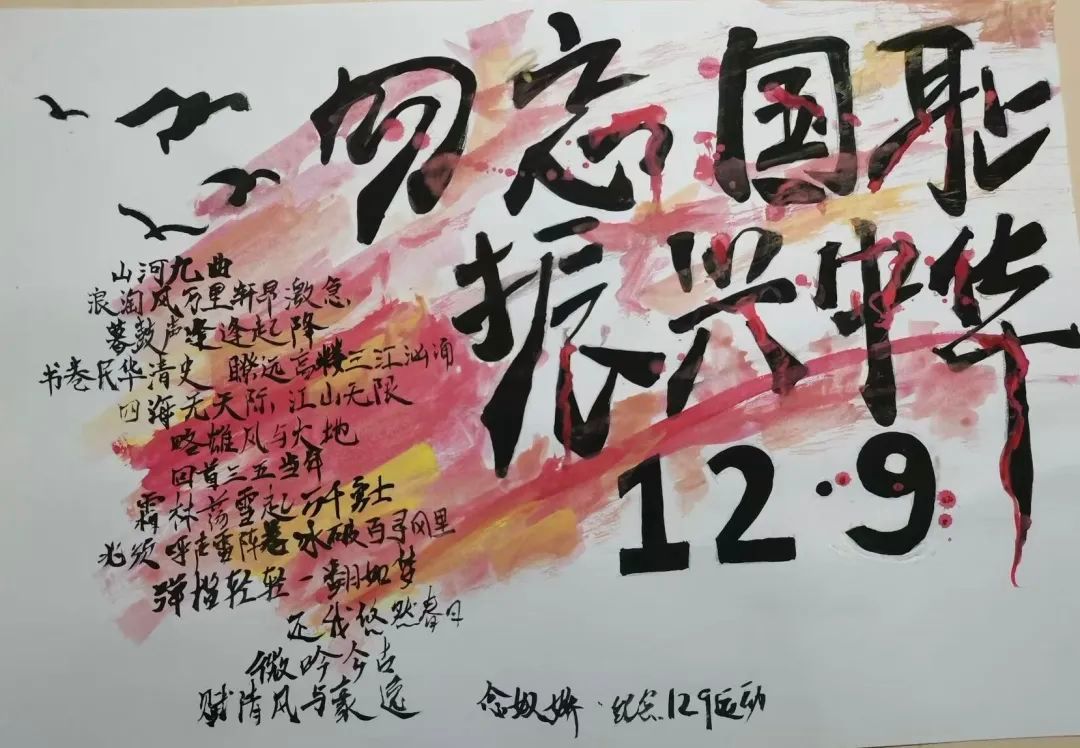 勿忘国耻
振兴中华
12·9
山河九曲
浪淘风万里轩昂激急
暮鼓声逢逢起降
书卷民华清史 睽远高楼三江汹涌
四海无天际,江山无限
略雄风与大地
回首三五当年
霜林荡雪起万千勇士
呼走雷阵卷冰破百寻风里
弹指轻轻一翻如梦
还我悠然春日
微吟今古
赋清风与豪远
念奴娇·纪念129运动